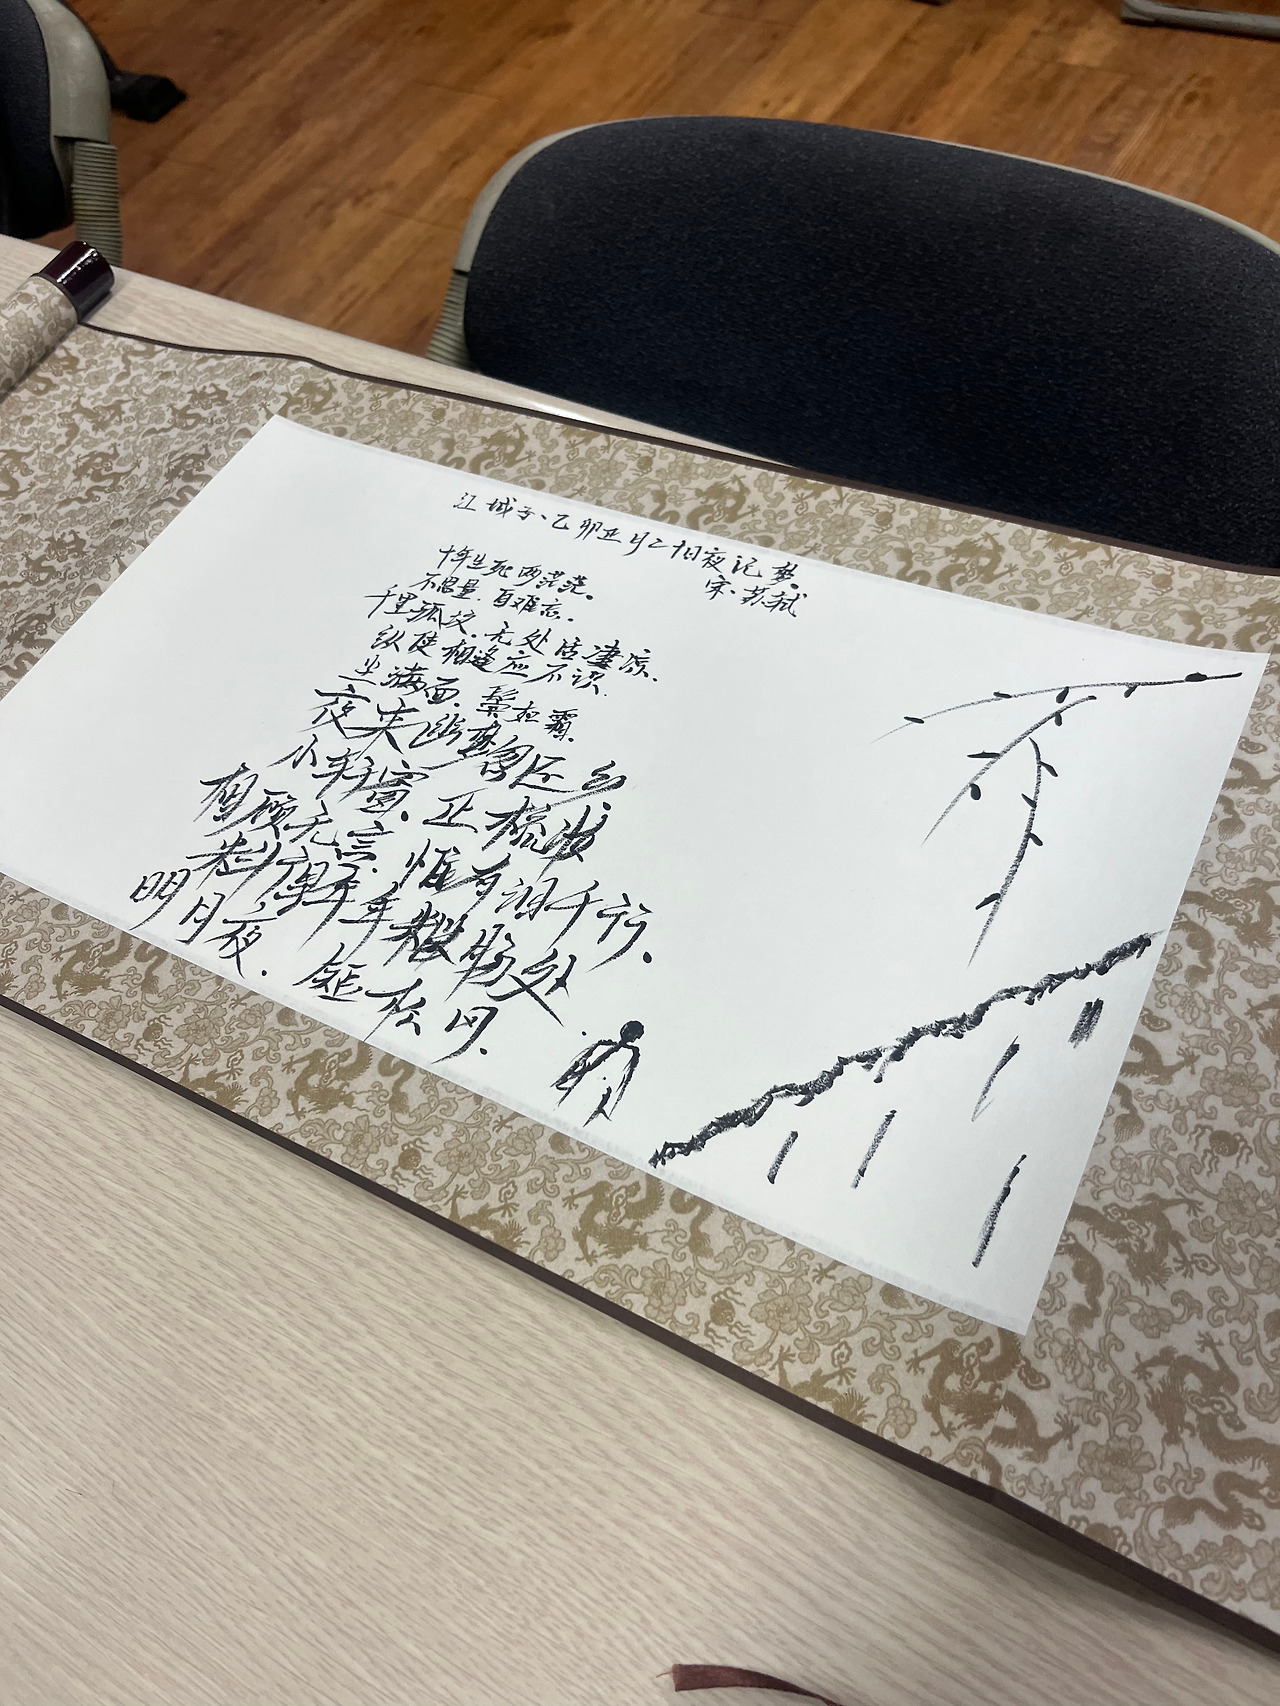 江城子·乙卯正月二十日夜记梦
宋·苏轼
十年生死两茫茫。
不思量.自难忘.
千里孤坟.无处话凄凉.
纵使相逢应不识.
尘满面.鬓如霜.
夜来幽梦忽还乡.
小轩窗.正梳妆
相顾无言.惟有泪千行.
料得年年断肠处
明月夜.短松冈.